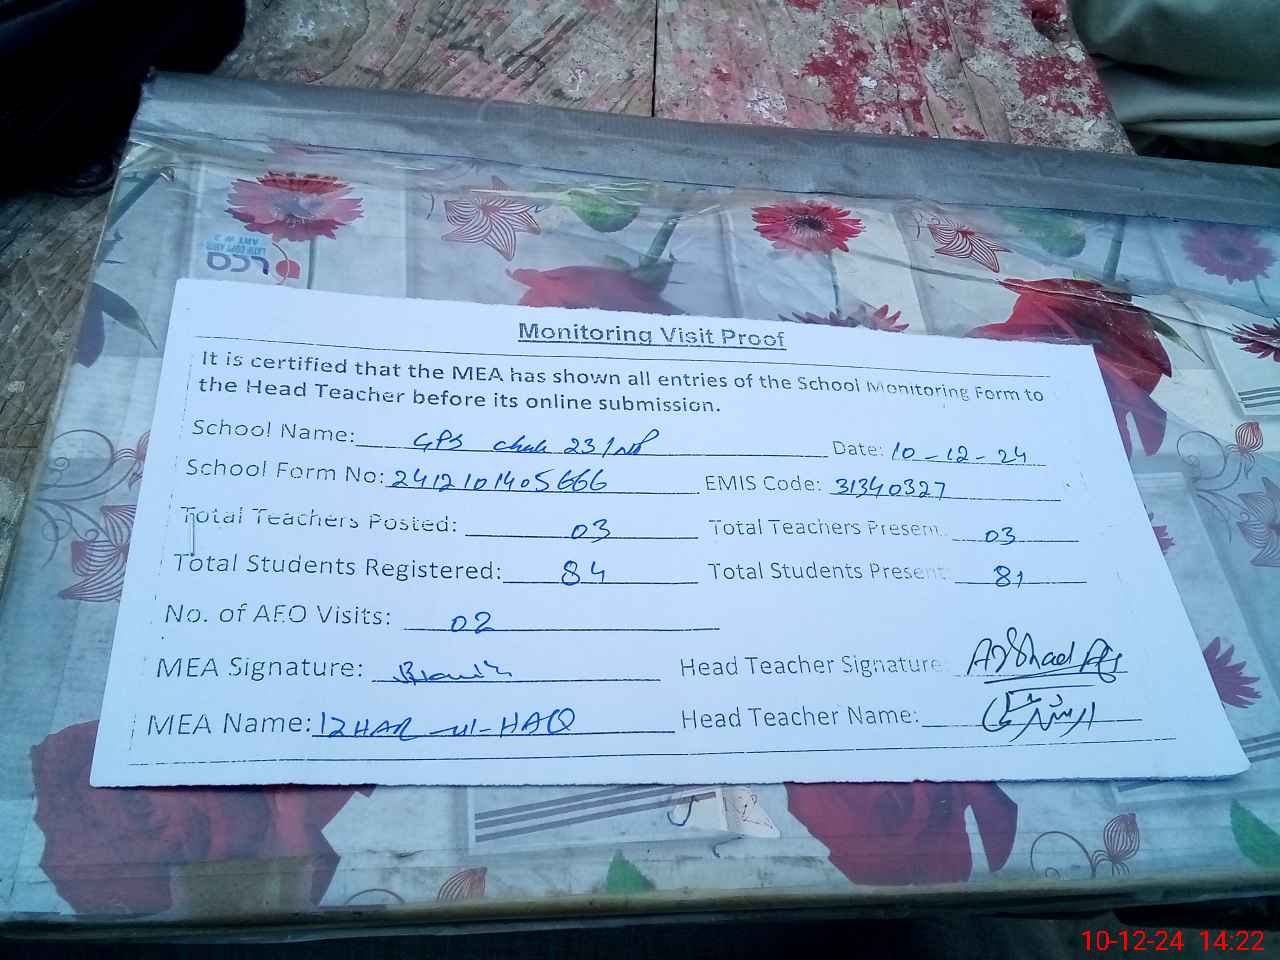 Monitoring Visit Proof
It is certified that the MEA has shown all entries of the School Monitoring Form to
the Head Teacher before its online submission.
School Name: GPS Chak 23/NP Date: 10-12-24
School Form No: 2412101405666 EMIS Code: 31340327
Total Teachers Posted: 03 Total Teachers Present: 03
Total Students Registered: 84 Total Students Present: 81
No. of AEO Visits: 02
MEA Signature: Head Teacher Signature: Arshad Ali
MEA Name: IZHAR-ul-HAQ Head Teacher Name: ارشد علی
rca
10-12-24 14:22